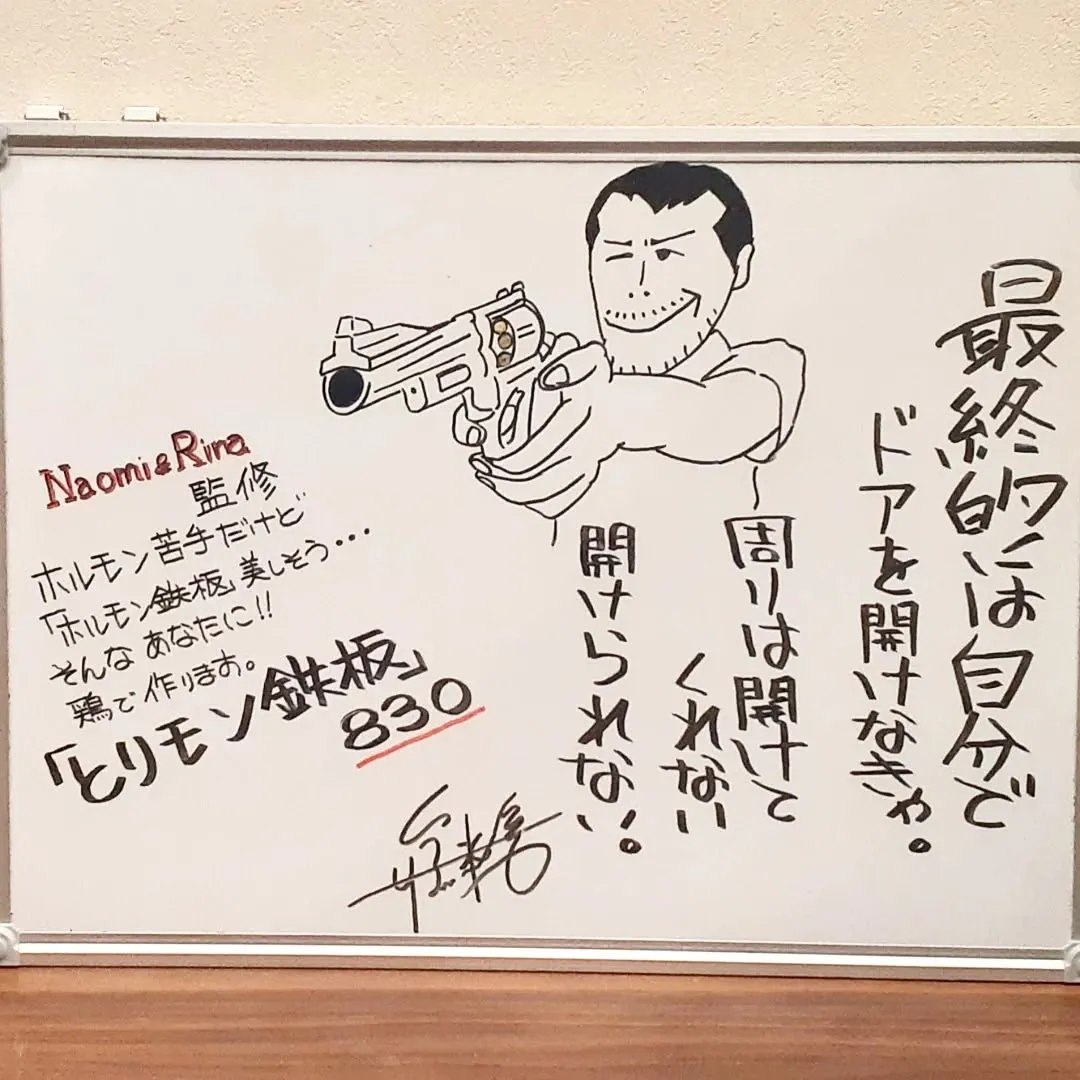 最終的には自分で
ドアを開けなきゃ。
周りは開けて
くれない
開けられない!。
Naomi&Rina
監修
ホルモン苦手だけど
「ホルモン鉄板」美しそう・・・
そんなあなたに!!
鶏で作ります。
「とりモン鉄板」
830